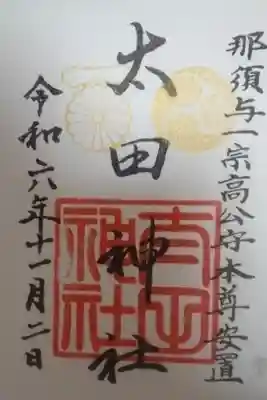 那須与一宗高公守本尊安置
太田神社
令和六年十一月二日
太田
神社